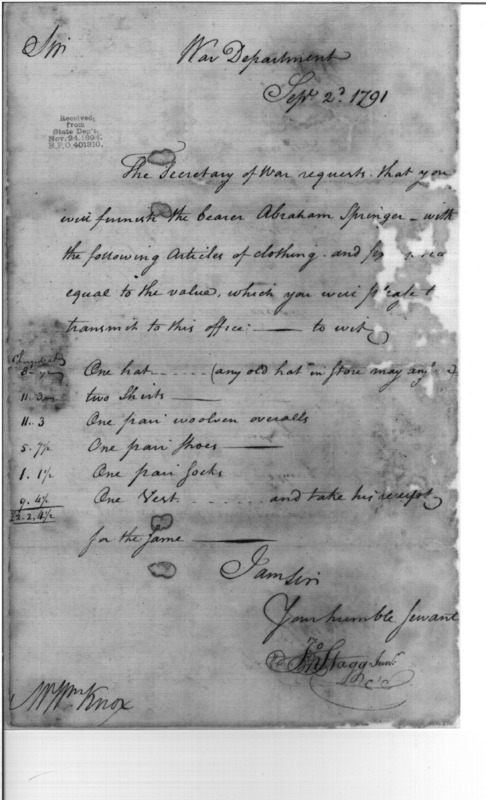 Sir
War Department
Sepr. 2d. 1791
Received,
from
State Dep't,
Nov. 24, 1894.
R.P.O. 401810.
The Secretary of War requests that you
will furnish the bearer Abraham Springer - with
the following Articles of clothing - and for
equal to the value, which you will
transmit to this office: —— to wit
8- One hat - - - - - (any old hat in store may
11. two Shirts ——
11. 3 One pair woolven overalls
5. 7½ One pair Shoes ——
1. 1½ One pair Socks
9. 4½ One Vest - - - - - - and take his receipt
2. 2. 4½
for the same ——
I am Sir
Your humble Servant
Jno Stagg Junr.
Mr Wm Knox